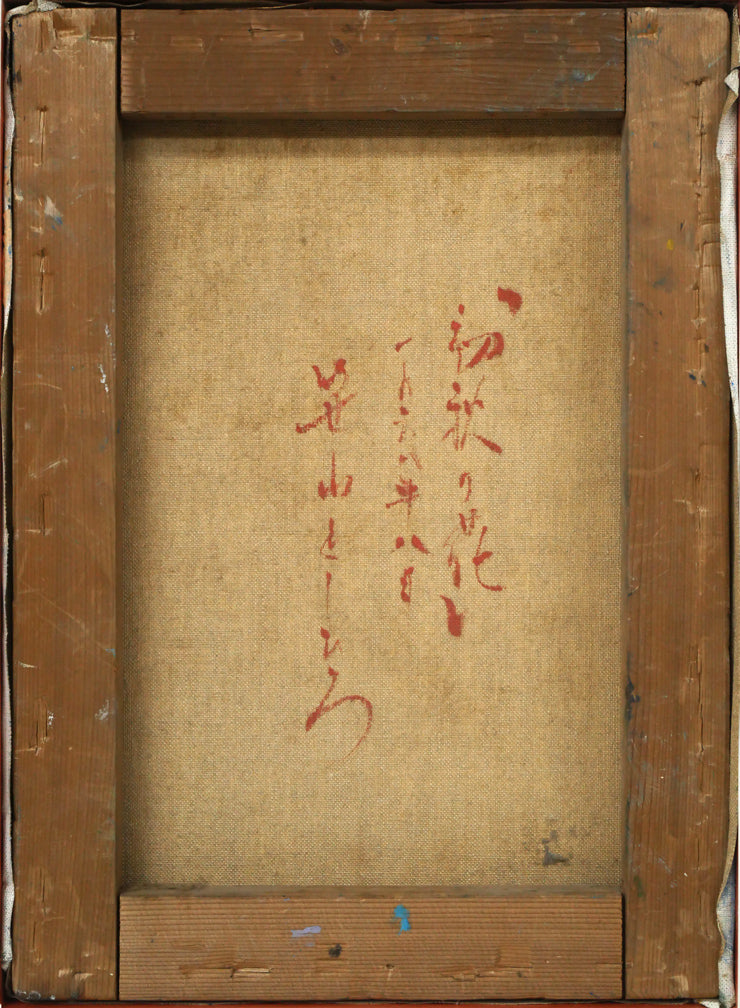 〝初秋の花〟
一九六八年八月
笹山としひろ